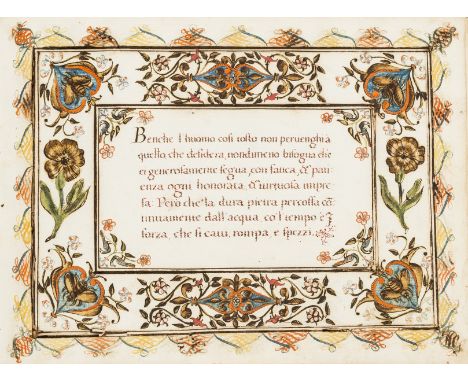 Benche l huomo cosi tosto non peruenghi à
quello che desidera, nondimeno bisogna che
ei generosamente segua, con fatica, & pa-
tienza ogni honorata, & uirtuosa impre
sa. Però che la dura pietra percossa cõ
tinuamente dall' acqua, co'l tempo è
forza, che si caui, rompa, e spezzi.